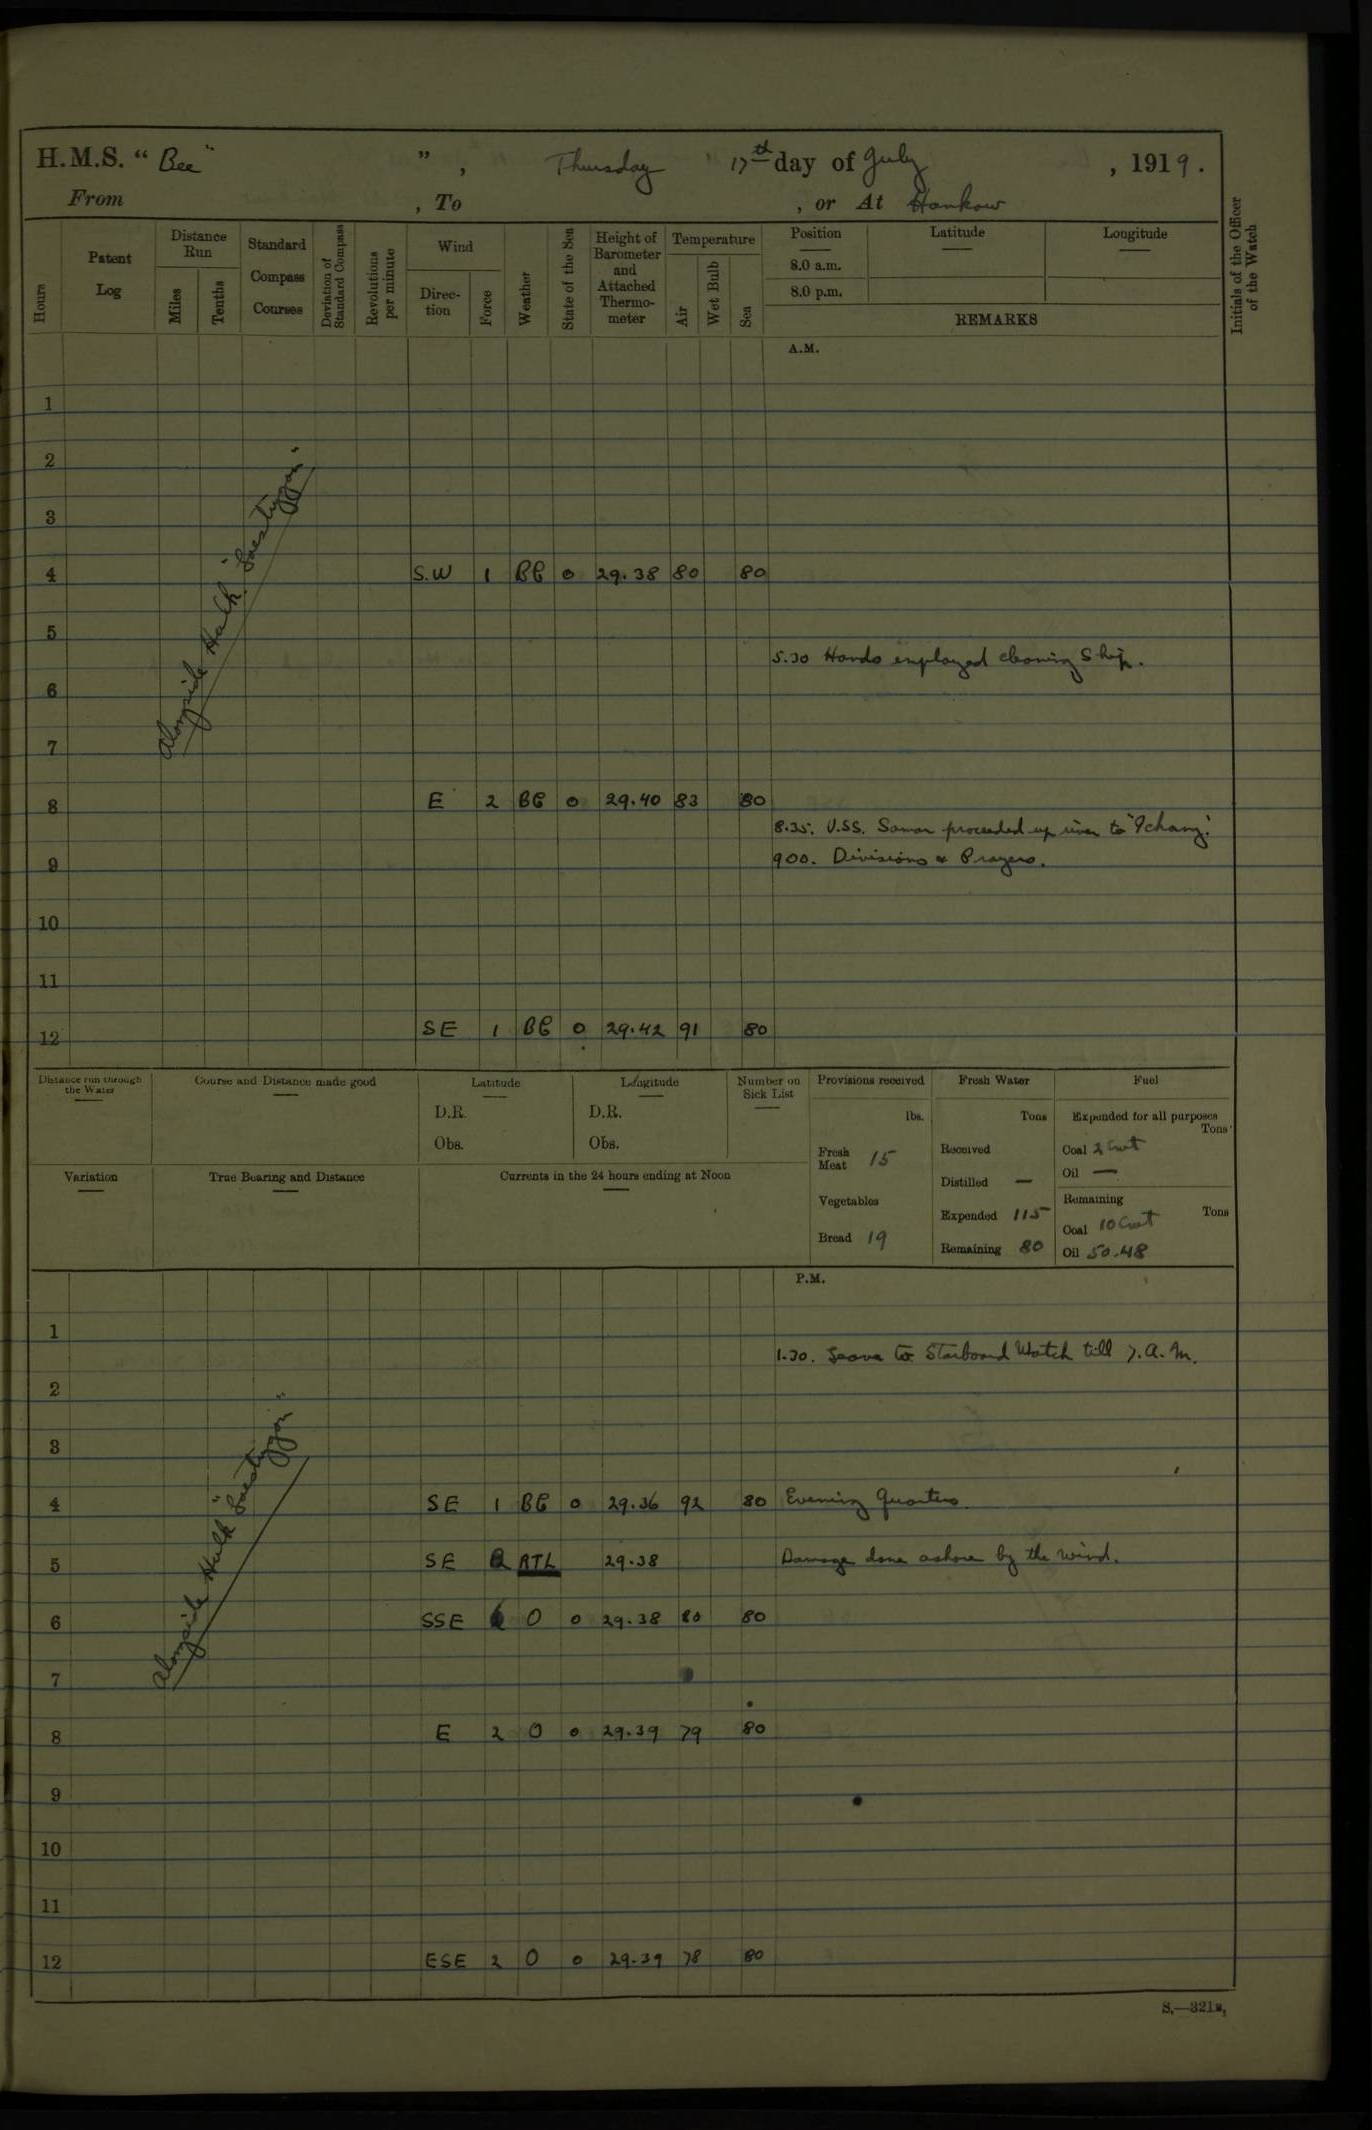 H.M.S. “ Bee ” , Thursday 17th day of July , 1919.
From , To , or At Hankow
Hours
Patent Log
Distance Run
Miles
Tenths
Standard Compass Courses
Deviation of Standard Compass
Revolutions per minute
Wind
Direc-tion
Force
Weather
State of the Sea
Height of Barometer and Attached Thermo-meter
Temperature
Air
Wet Bulb
Sea
Position
Latitude
Longitude
8.0 a.m.
8.0 p.m.
REMARKS
Initials of the Officer of the Watch
A.M.
1
2
3
Alongside Hulk "Saestygon"
4 S.W 1 BC 0 29.38 80 80
5
5.30 Hands employed cleaning Ship.
6
7
8 E 2 BC 0 29.40 83 80
8.35. U.S.S. Samar proceeded up river to "Ichang".
9 900. Divisions & Prayers.
10
11
12 SE 1 BC 0 29.42 91 80
Distance run through the Water
Course and Distance made good
Latitude
Longitude
Number on Sick List
Provisions received
Fresh Water
Fuel
D.R.
D.R.
lbs.
Tons
Expended for all purposes
Tons
Obs.
Obs.
Fresh Meat 15
Received
Coal 2 Cwt
Oil —
Variation
True Bearing and Distance
Currents in the 24 hours ending at Noon
Distilled —
Vegetables
Remaining
Tons
Expended 115
Coal 10 Cwt
Bread 19
Remaining 80
Oil 50.48
P.M.
1
1.30. Leave to Starboard Watch till 7.A.M.
2
3
Alongside Hulk "Saestygon"
4 SE 1 BC 0 29.36 92 80 Evening Quarters.
5 SE RTL 29.38 Damage done ashore by the wind.
6 SSE O 0 29.38 80 80
7
8 E 2 O 0 29.39 79 80
9
10
11
12 ESE 2 O 0 29.39 78 80